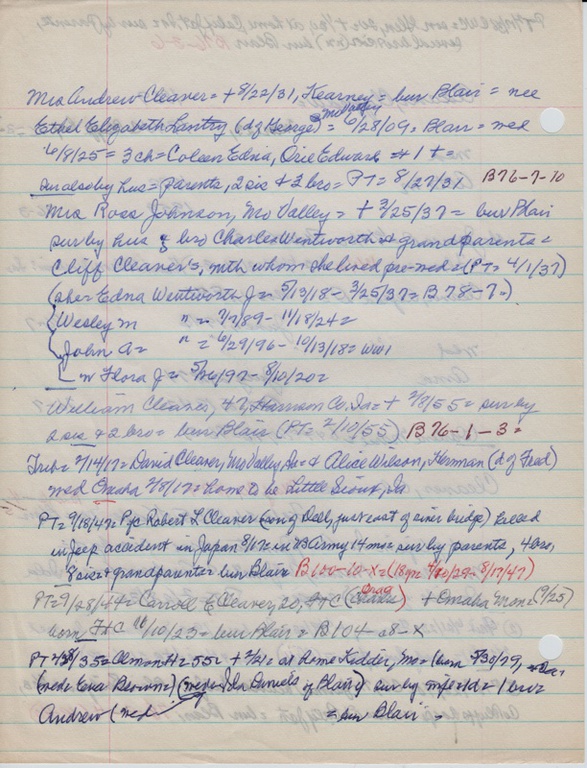 Mrs Andrew Cleaver = + 8/22/31, Kearney = bur Blair = nee
Mo Valley
Ethel Elizabeth Lantry (d of George) = 6/28/09 = Blair = wed
6/8/25 = 3 ch = Coleen Edna, Orie Edward + 1 + =
sur also by hus = parents, 2 sis & 2 bro = PT = 8/27/31 B76-7-10
Mrs Ross Johnson, Mo Valley = + 3/25/37 = bur Blair
sur by hus & bro Charles Wentworth & grandparents =
Cliff Cleaver's, with whom she lived pre-wed = (PT = 4/1/37)
(she Edna Wentworth J = 5/13/18 - 3/25/37 = B78-7=)
Wesley M " = 7/7/89 - 11/18/24 =
John A = " = 6/29/96 - 10/13/18 = WW1
w Flora J = 5/16/97 - 8/10/20 =
William Cleaver, 47, Harrison Co. Ia = + 2/8/55 = sur by
2 sis & 2 bro = bur Blair (PT = 2/10/55) B76-1-3 =
Trib = 2/14/17 = David Cleaver, Mo Valley, Ia = & Alice Wilson, Herman (d of Fred)
wed Omaha 2/8/17 = home to be Little Sioux, Ia
PT = 9/18/47 = Pfc Robert L Cleaver (son of Dell, just east of river bridge) killed
in Jeep accident in Japan 8/17 = in Army 14 mo = sur by parents, 4 bro,
8 sis & grandparents = bur Blair B100-10-X = (18 yr = 4/10/29 - 8/17/47)
PT = 9/28/44 = Carroll E Cleaver, 20, Ft C (Craig) + Omaha Mon = (9/25)
born Ft C 10/10/23 = bur Blair = B104 - 8 - X
PT 2/28/35 = Almon H = 55 = + 2/21 = at home Kidder, Mo = born 5/30/79,
(wed = Eva Brown =) (wed = Ida Daniels of Blair) sur by wife + d = 1 bro =
Andrew (wed = bur Blair =